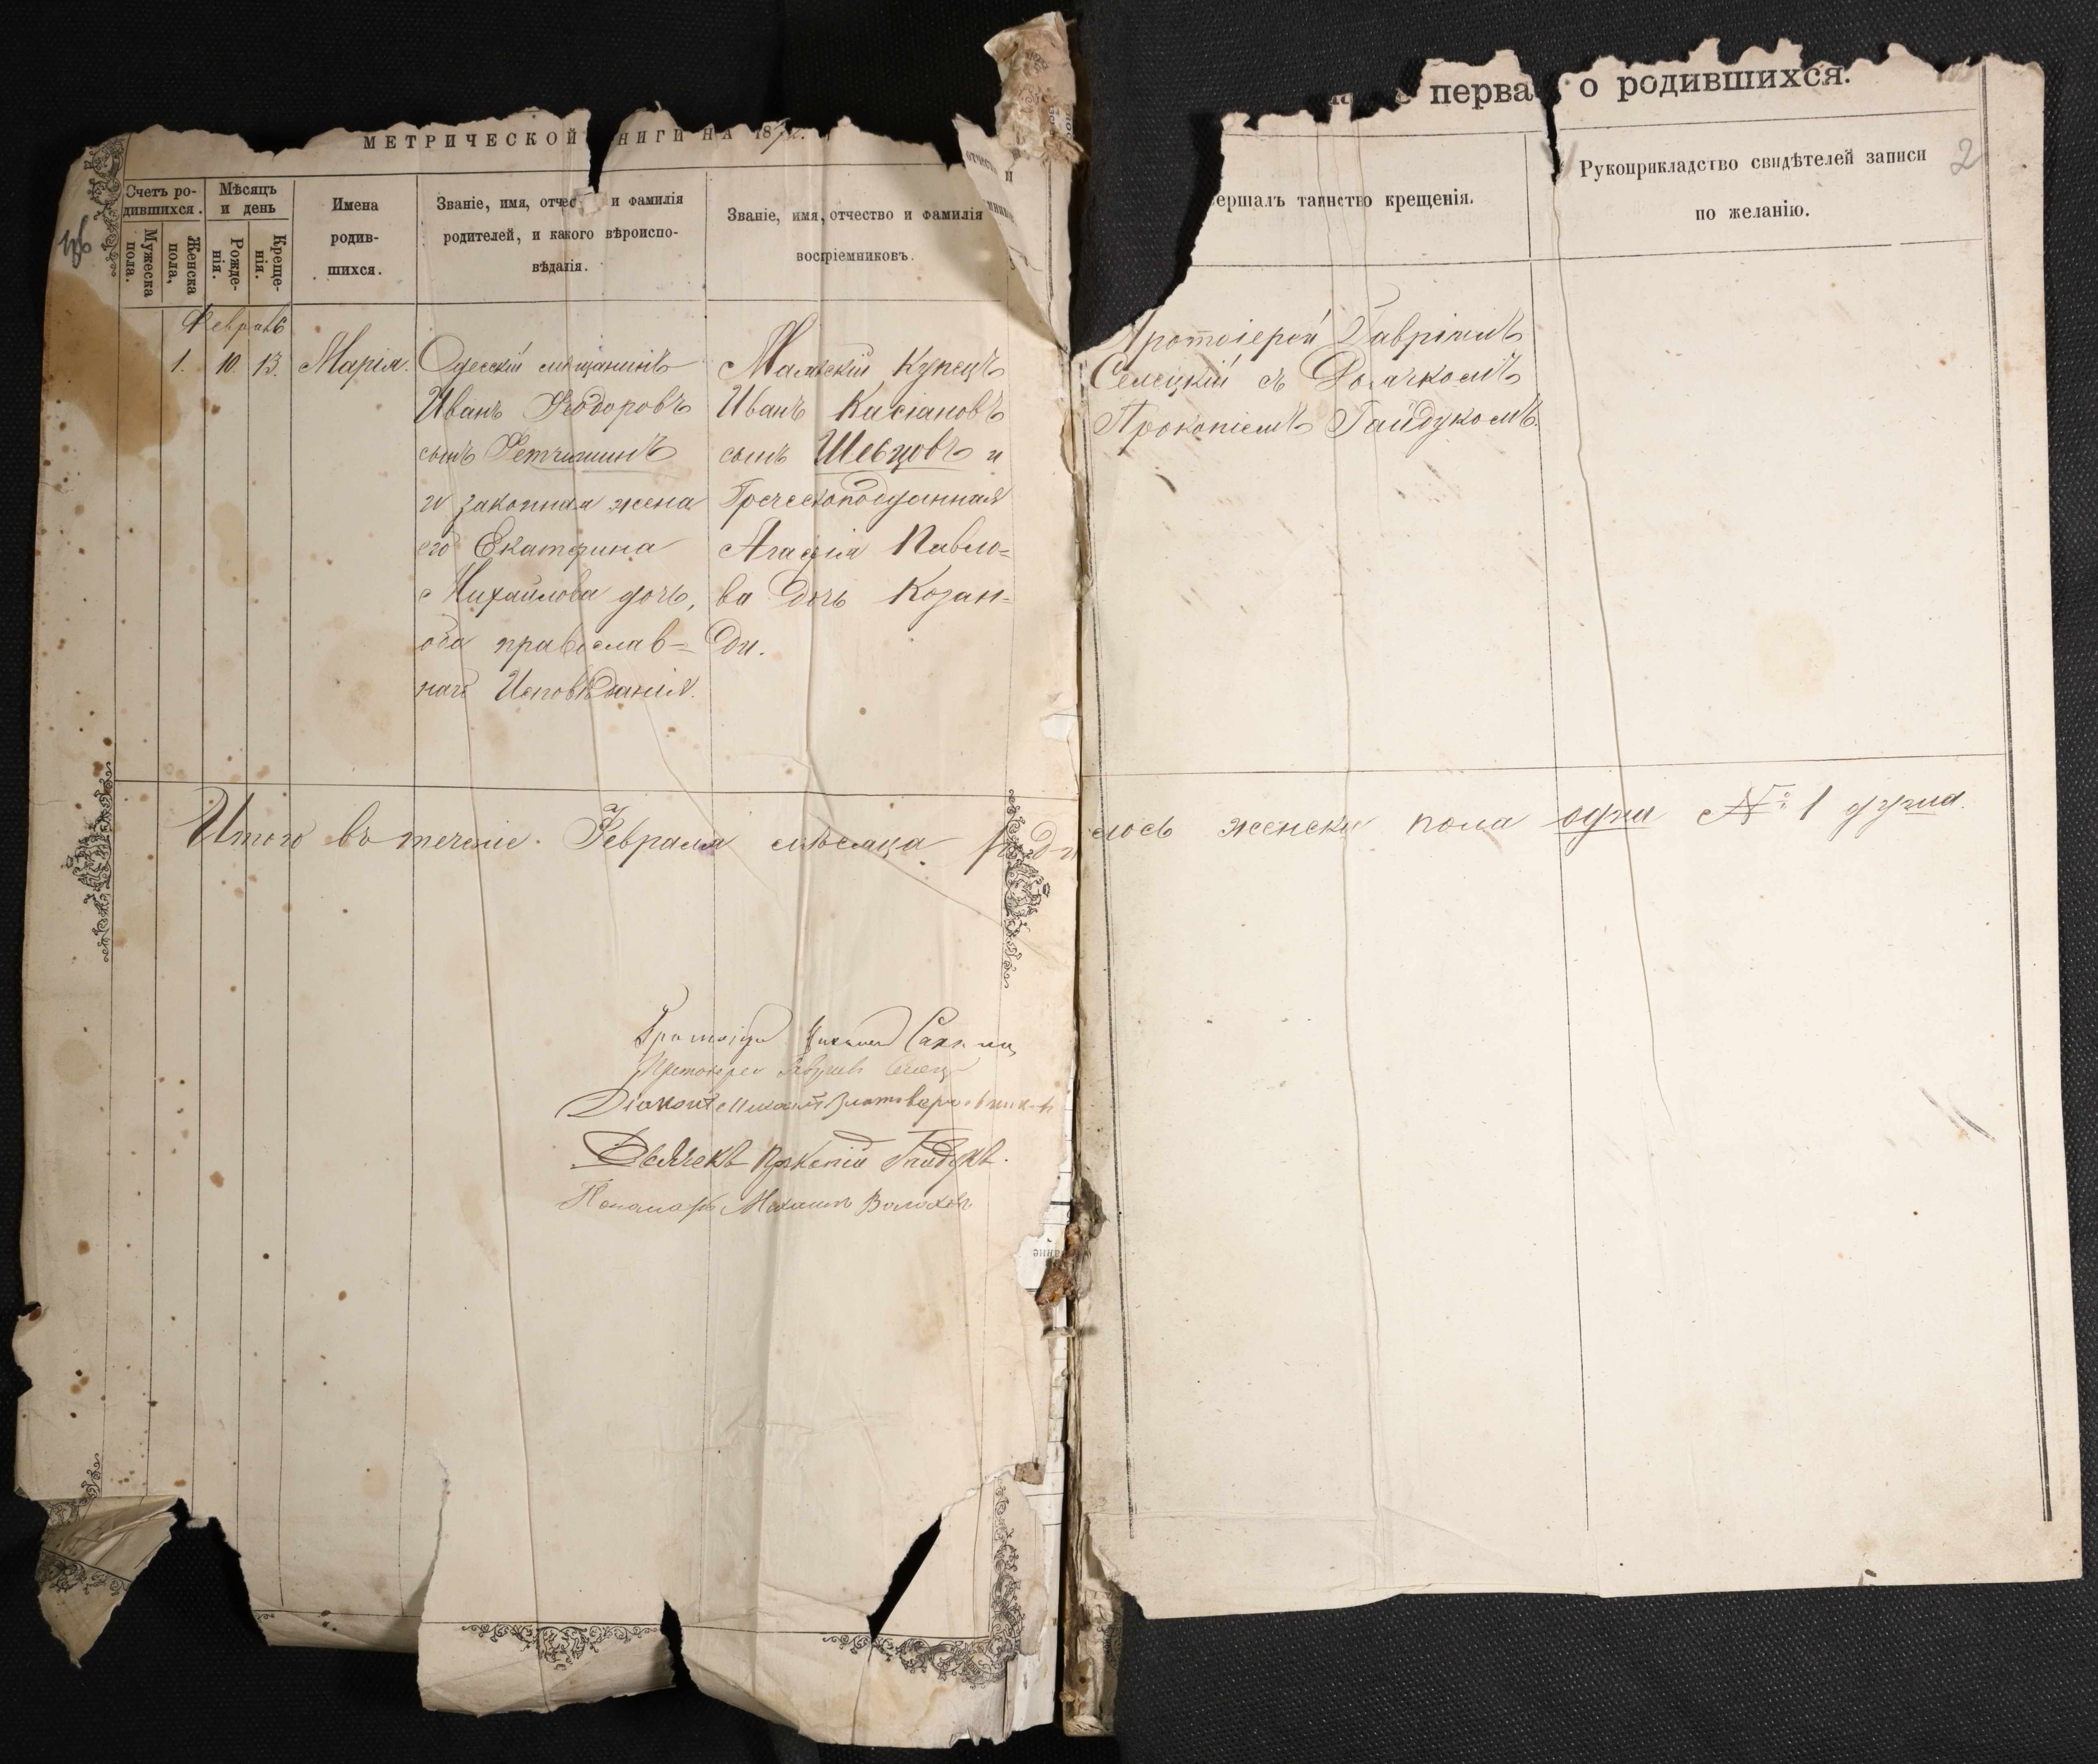 МЕТРИЧЕСКОЙ НИГИ НА 187
перва о родившихся.
2
Счетъ ро-
дившихся.
Мужеска пола.
Женска пола,
Мѣсяцъ
и день
Рожде-
нія.
Креще-
нія.
Имена
родив-
шихся.
Званіе, имя, отчес и фамилія
родителей, и какого вѣроиспо-
вѣданія.
Званіе, имя, отчество и фамилія
воспріемниковъ.
ершалъ таинство крещенія.
Рукоприкладство свидѣтелей записи
по желанію.
Февраль
1. 10. 13. Марія.
Одесскій мѣщанинъ
Иванъ Ѳеодоровъ
сынъ
и законная жена
его Екатерина
Михайлова дочь,
оба православ=
наго Исповѣданія.
Купецъ
Иванъ Касіановъ
сынъ Шевцовъ и
Греческоподданная
Агафія Павло=
ва дочь Козан=
ди.
Протоіерей Гавріилъ
Селецкій съ Дьячкомъ
Прокопіемъ Гайдукомъ.
Итого въ теченіе Февраля мѣсяца роди лось женска пола одна № 1 душа.
Протоіерей
Протоіерей Гавріилъ
Діаконъ
Дьячекъ Прокопій Гайдукъ.
Пономарь